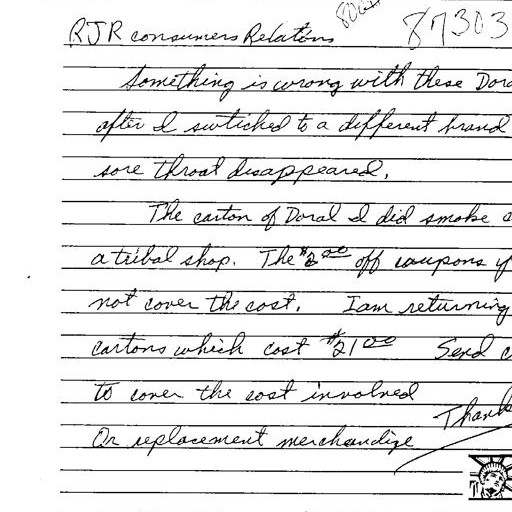 87303
RJR consumers Relations
Something is wrong with these Dora
after I swtiched to a different brand
sore throat disappeared.
The carton of Doral I did smoke
a tribal shop. The $2.00 off coupons y
not cover the cost. I am returning
cartons which cost $21.00 Send c
to cover the cost involved
Thank
Or replacement merchandize